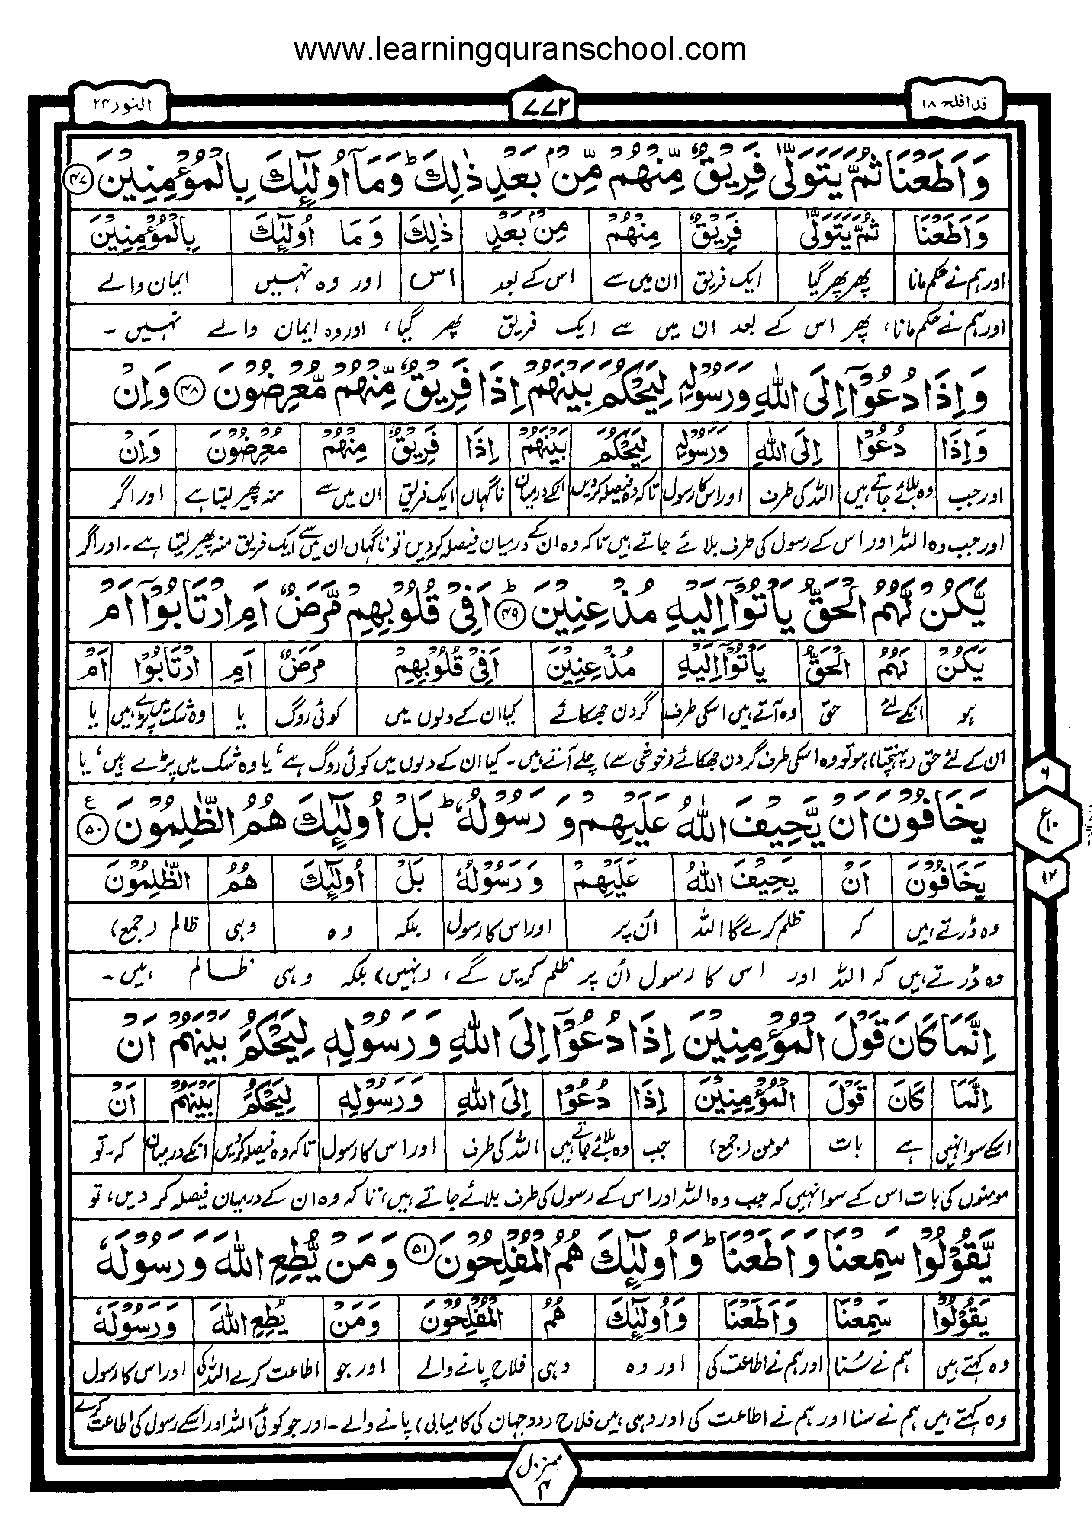 www.learningquranschool.com
قد افلح ۱۸
۷۷۲
النور ۲۴
وَاَطَعْنَا ثُمَّ يَتَوَلّٰى فَرِيْقٌ مِّنْهُمْ مِّنْۢ بَعْدِ ذٰلِكَ ؕ وَمَآ اُولٰٓئِكَ بِالْمُؤْمِنِيْنَ ﴿۴۷﴾
وَاَطَعْنَا ثُمَّ يَتَوَلّٰى فَرِيْقٌ مِنْهُمْ مِنْۢ بَعْدِ ذٰلِكَ وَمَا اُولٰٓئِكَ بِالْمُؤْمِنِيْنَ
اور ہم نے حکم مانا پھر پھر گیا ایک فریق ان میں سے اس کے بعد اس اور وہ نہیں ایمان والے
اور ہم نے حکم مانا، پھر اس کے بعد ان میں سے ایک فریق پھر گیا، اور وہ ایمان والے نہیں۔
وَاِذَا دُعُوْٓا اِلَى اللّٰهِ وَرَسُوْلِهٖ لِيَحْكُمَ بَيْنَهُمْ اِذَا فَرِيْقٌ مِّنْهُمْ مُّعْرِضُوْنَ ﴿۴۸﴾ وَاِنْ
وَاِذَا دُعُوْٓا اِلَى اللّٰهِ وَرَسُوْلِهٖ لِيَحْكُمَ بَيْنَهُمْ اِذَا فَرِيْقٌ مِنْهُمْ مُعْرِضُوْنَ وَاِنْ
اور جب وہ بلائے جاتے ہیں اللہ کی طرف اور اس کا رسول تاکہ وہ فیصلہ کردیں انکے درمیان ناگہاں ایک فریق ان میں سے منہ پھیر لیتا ہے اور اگر
اور جب وہ اللہ اور اس کے رسول کی طرف بلائے جاتے ہیں تاکہ وہ ان کے درمیان فیصلہ کردیں تو ناگہاں ان میں سے ایک فریق منہ پھیر لیتا ہے۔ اور اگر
يَّكُنْ لَّهُمُ الْحَقُّ يَاْتُوْٓا اِلَيْهِ مُذْعِنِيْنَ ؕ ﴿۴۹﴾ اَفِيْ قُلُوْبِهِمْ مَّرَضٌ اَمِ ارْتَابُوْٓا اَمْ
يَكُنْ لَهُمُ الْحَقُّ يَاْتُوْٓا اِلَيْهِ مُذْعِنِيْنَ اَفِيْ قُلُوْبِهِمْ مَرَضٌ اَمِ ارْتَابُوْٓا اَمْ
ہو انکے لئے حق وہ آتے ہیں اسکی طرف گردن جھکائے کیا ان کے دلوں میں کوئی روگ یا وہ شک میں پڑے ہیں یا
ان کے لئے حق (پہنچتا) ہو تو وہ اسکی طرف گردن جھکائے (خوشی سے) چلے آتے ہیں۔ کیا ان کے دلوں میں کوئی روگ ہے، یا وہ شک میں پڑے ہیں، یا
يَخَافُوْنَ اَنْ يَّحِيْفَ اللّٰهُ عَلَيْهِمْ وَرَسُوْلُهٗ ؕ بَلْ اُولٰٓئِكَ هُمُ الظّٰلِمُوْنَ ﴿۵۰﴾ ع
يَخَافُوْنَ اَنْ يَحِيْفَ اللّٰهُ عَلَيْهِمْ وَرَسُوْلُهٗ بَلْ اُولٰٓئِكَ هُمُ الظّٰلِمُوْنَ
وہ ڈرتے ہیں کہ ظلم کرے گا اللہ اُن پر اور اس کا رسول بلکہ وہ وہی ظالم (جمع)
وہ ڈرتے ہیں کہ اللہ اور اس کا رسول اُن پر ظلم کریں گے، (نہیں) بلکہ وہی ظالم ہیں۔
۶
ع ۱۰
۱۲
اِنَّمَا كَانَ قَوْلَ الْمُؤْمِنِيْنَ اِذَا دُعُوْٓا اِلَى اللّٰهِ وَرَسُوْلِهٖ لِيَحْكُمَ بَيْنَهُمْ اَنْ
اِنَّمَا كَانَ قَوْلَ الْمُؤْمِنِيْنَ اِذَا دُعُوْٓا اِلَى اللّٰهِ وَرَسُوْلِهٖ لِيَحْكُمَ بَيْنَهُمْ اَنْ
اسکے سوا نہیں ہے بات مومن (جمع) جب وہ بلائے جاتے ہیں اللہ کی طرف اور اس کا رسول تاکہ وہ فیصلہ کردیں انکے درمیان کہ۔ تو
مومنوں کی بات اس کے سوا نہیں کہ جب وہ اللہ اور اس کے رسول کی طرف بلائے جاتے ہیں، تاکہ وہ ان کے درمیان فیصلہ کر دیں، تو
يَّقُوْلُوْا سَمِعْنَا وَاَطَعْنَا ؕ وَاُولٰٓئِكَ هُمُ الْمُفْلِحُوْنَ ﴿۵۱﴾ وَمَنْ يُّطِعِ اللّٰهَ وَرَسُوْلَهٗ
يَقُوْلُوْا سَمِعْنَا وَاَطَعْنَا وَاُولٰٓئِكَ هُمُ الْمُفْلِحُوْنَ وَمَنْ يُطِعِ اللّٰهَ وَرَسُوْلَهٗ
وہ کہتے ہیں ہم نے سُنا اور ہم نے اطاعت کی اور وہ وہی فلاح پانے والے اور جو اطاعت کرے اللہ کی اور اس کا رسول
وہ کہتے ہیں ہم نے سنا اور ہم نے اطاعت کی اور وہی ہیں فلاح (دو جہان کی کامیابی) پانے والے۔ اور جو کوئی اللہ اور اسکے رسول کی اطاعت کرے
منزل ۴